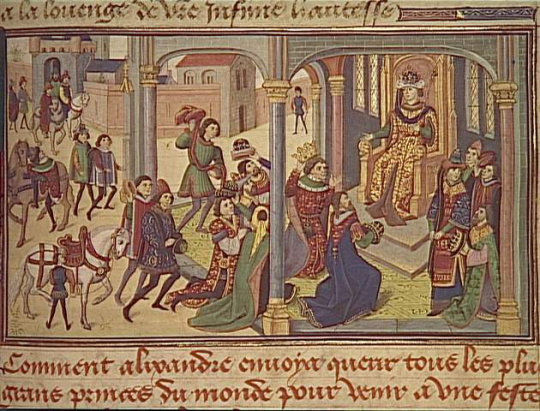 a la louenge de vre Infinie hautesse
Comment alixandre enuoya querir tous les plu
grans princes du monde pour venir a vne feste